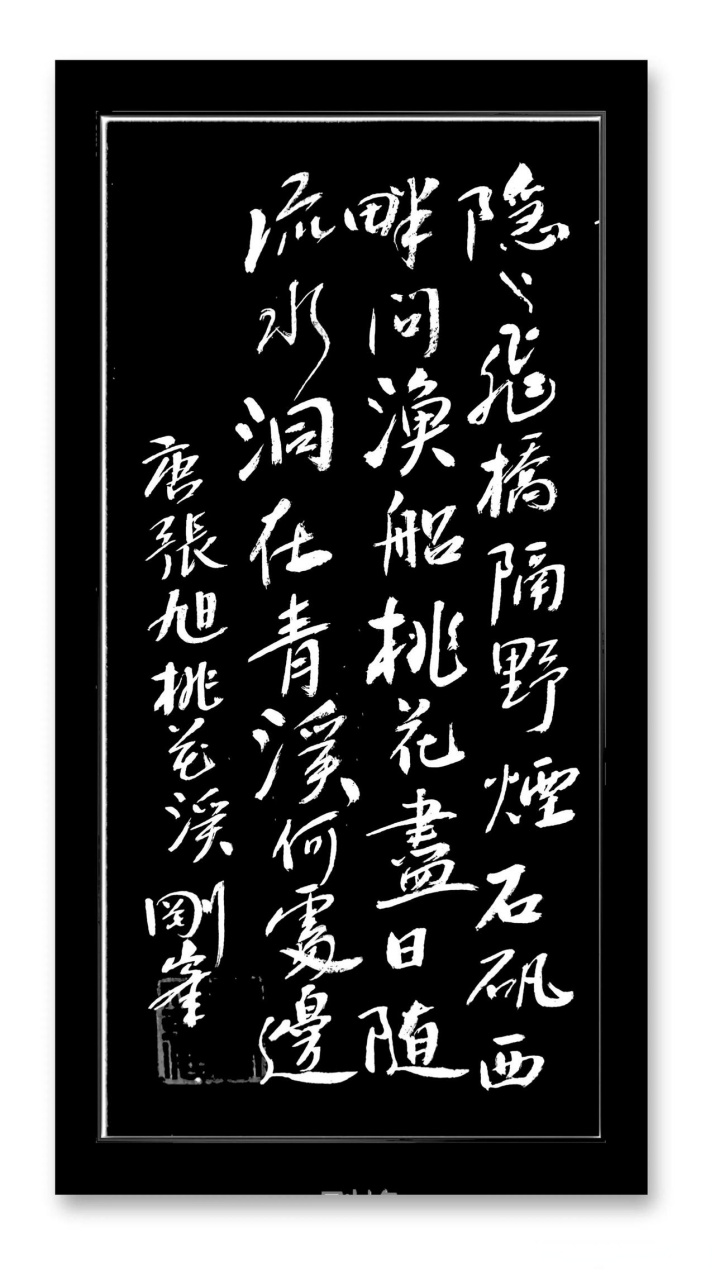 隐〻飛橋隔野煙石矶西
畔问漁船桃花盡日随
流水洞在青溪何處邊
唐張旭桃花溪 剛峯